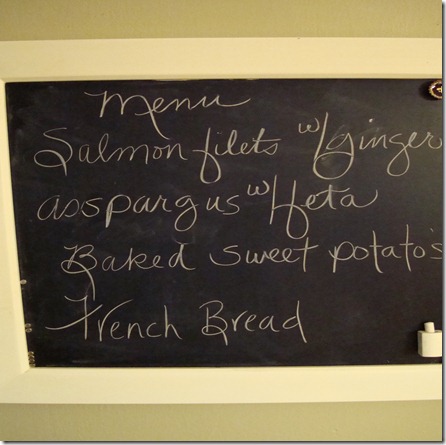 Menu
Salmon filets w/ginger
asspargus w/feta
Baked sweet potato's
French Bread